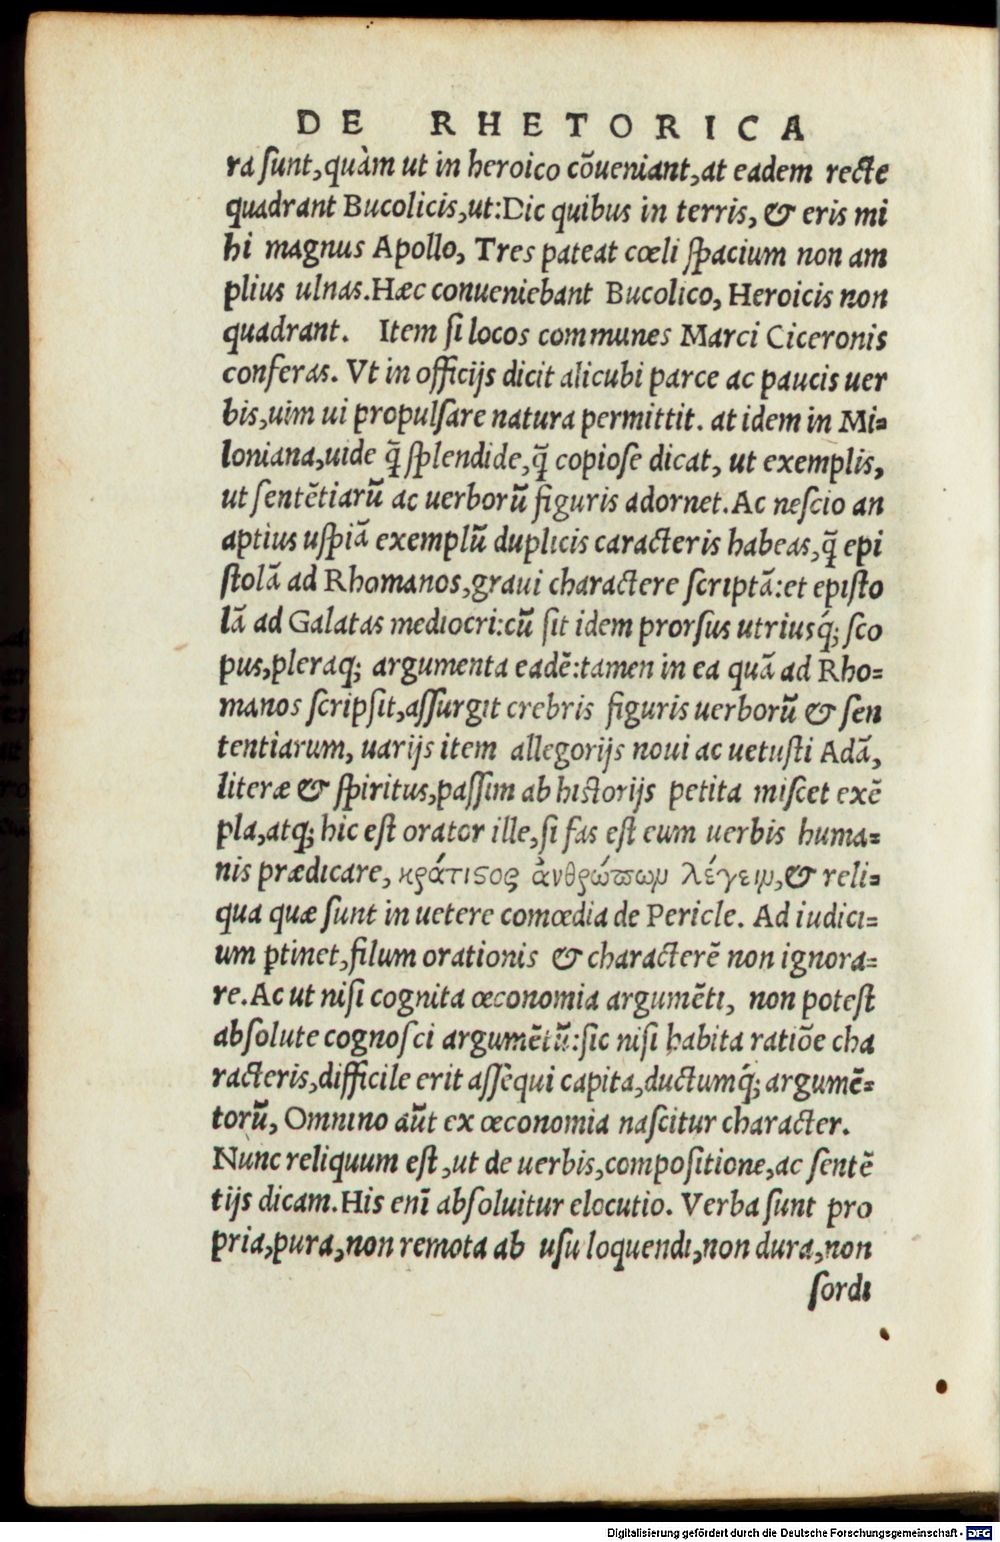 DE RHETORICA
ra ſunt,quàm ut in heroico cõueniant,at eadem recte
quadrant Bucolicis,ut:Dic quibus in terris, & eris mi
hi magnus Apollo, Tres pateat cœli ſpacium non am
plius ulnas.Hæc conueniebant Bucolico, Heroicis non
quadrant. Item ſi locos communes Marci Ciceronis
conferas. Vt in officijs dicit alicubi parce ac paucis uer
bis,uim ui propulſare natura permittit. at idem in Mi=
loniana,uide q̃ ſplendide,q̃ copioſe dicat, ut exemplis,
ut ſentẽtiarũ ac uerborũ figuris adornet.Ac neſcio an
aptius uſpiã exemplũ duplicis caracteris habeas,q̃ epi
ſtolã ad Rhomanos,graui charactere ſcriptã:et epiſto
lã ad Galatas mediocri:cũ ſit idem prorſus utriusq́; ſco
pus,pleraq; argumenta eadẽ:tamen in ea quã ad Rho=
manos ſcripſit,aſſurgit crebris figuris uerborũ & ſen
tentiarum, uarijs item allegorijs noui ac uetuſti Adã,
literæ & ſpiritus,paſſim ab hiſtorijs petita miſcet exẽ
pla,atq; hic eſt orator ille,ſi fas eſt eum uerbis huma=
nis prædicare, κράτιςος ἀνθρώπωμ λέγειμ,& reli=
qua quæ ſunt in uetere comœdia de Pericle. Ad iudici=
um ꝑtinet,filum orationis & characterẽ non ignora=
re.Ac ut niſi cognita œconomia argumẽti, non poteſt
abſolute cognoſci argumẽtũ:ſic niſi habita ratiõe cha
racteris,difficile erit aſſequi capita,ductumq́; argumẽ=
torũ, Omnino aũt ex œconomia naſcitur character.
Nunc reliquum eſt,ut de uerbis,compoſitione,ac ſentẽ
tijs dicam.His enĩ abſoluitur elocutio. Verba ſunt pro
pria,pura,non remota ab uſu loquendi,non dura,non
ſordi
Digitalisierung gefördert durch die Deutsche Forschungsgemeinschaft - DFG